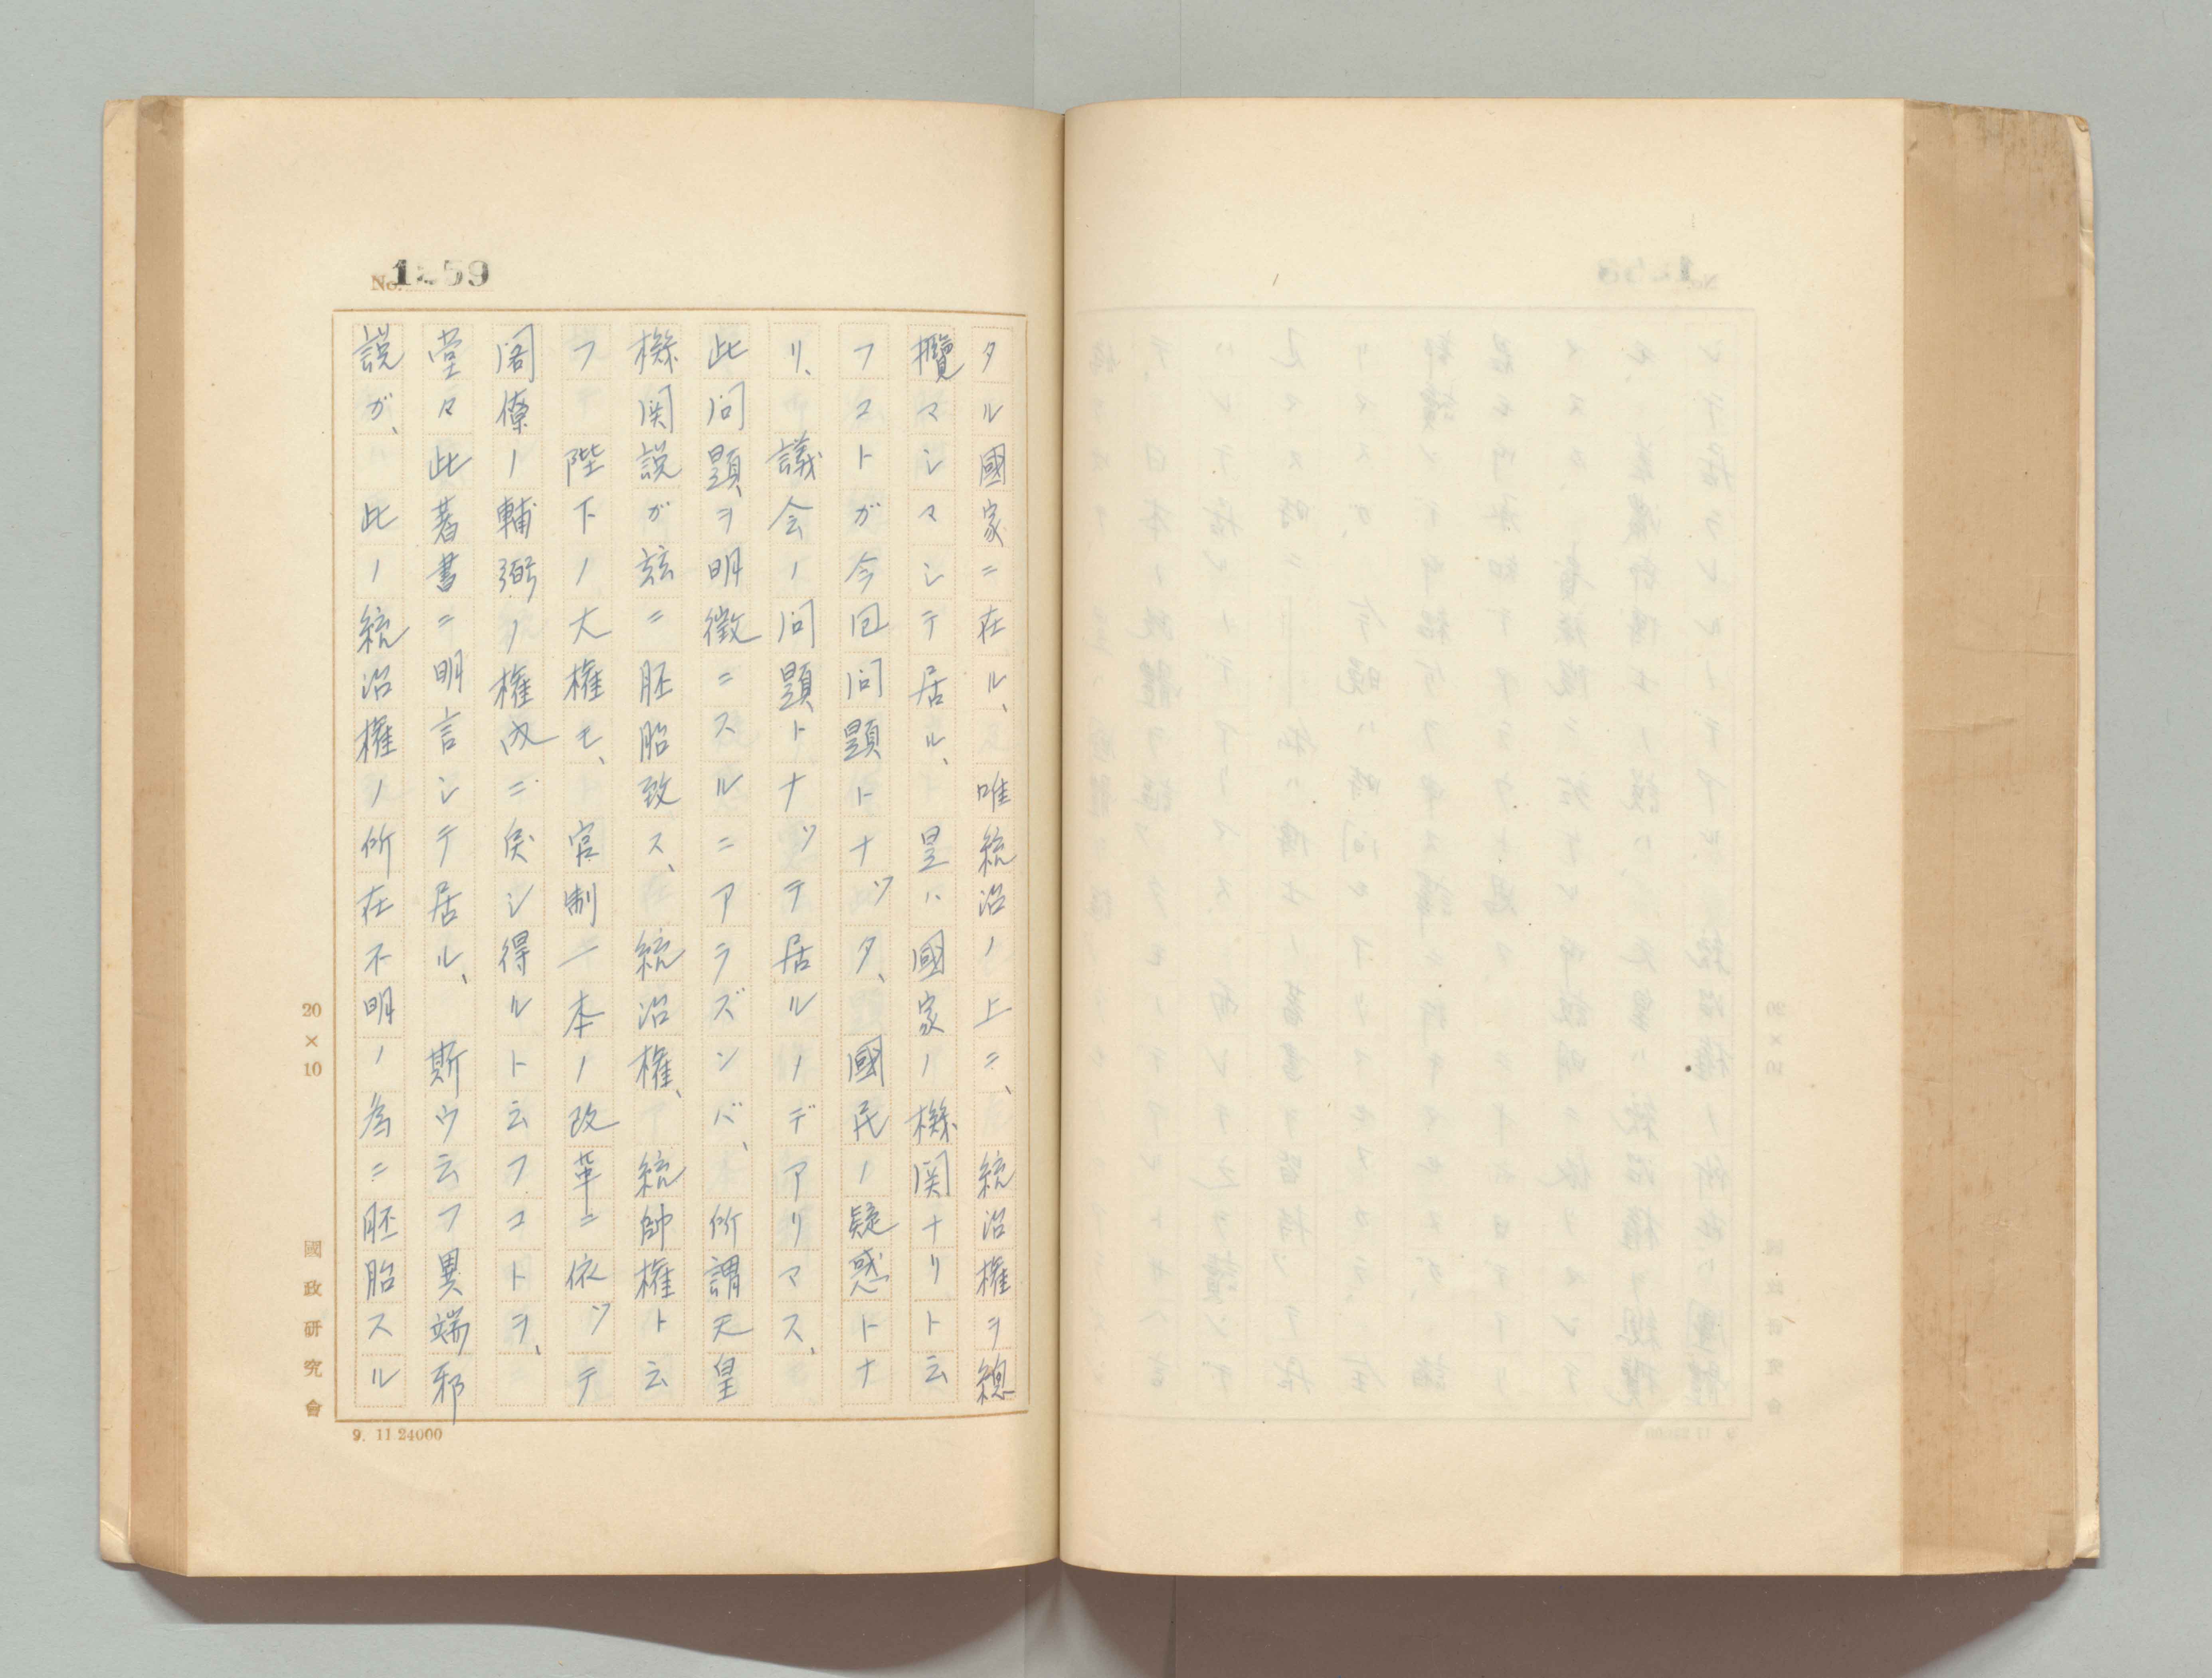 No. 1259
タル國家ニ在ル、唯統治ノ上ニ、統治權ヲ總
攬マシマシテ居ル、是ハ國家ノ機関ナリト云
フコトガ今回问題トナッタ、國民ノ疑惑トナ
リ、議会ノ问題トナッテ居ルノデアリマス、
此问題ヲ明徴ニスルニアラズンバ、所謂天皇
機関説ガ玆ニ胚胎致ス、統治權、統帥權ト云
フ 陛下ノ大權モ、官制一本ノ改革ニ依ッテ
閣僚ノ輔弼ノ權内ニ侯シ得ルト云フコトヲ、
堂々此著書ニ明言シテ居ル、斯ウ云フ異端邪
説ガ、此ノ統治權ノ所在不明ノ為ニ胚胎スル
20×10
國政研究會
9. 11 24000